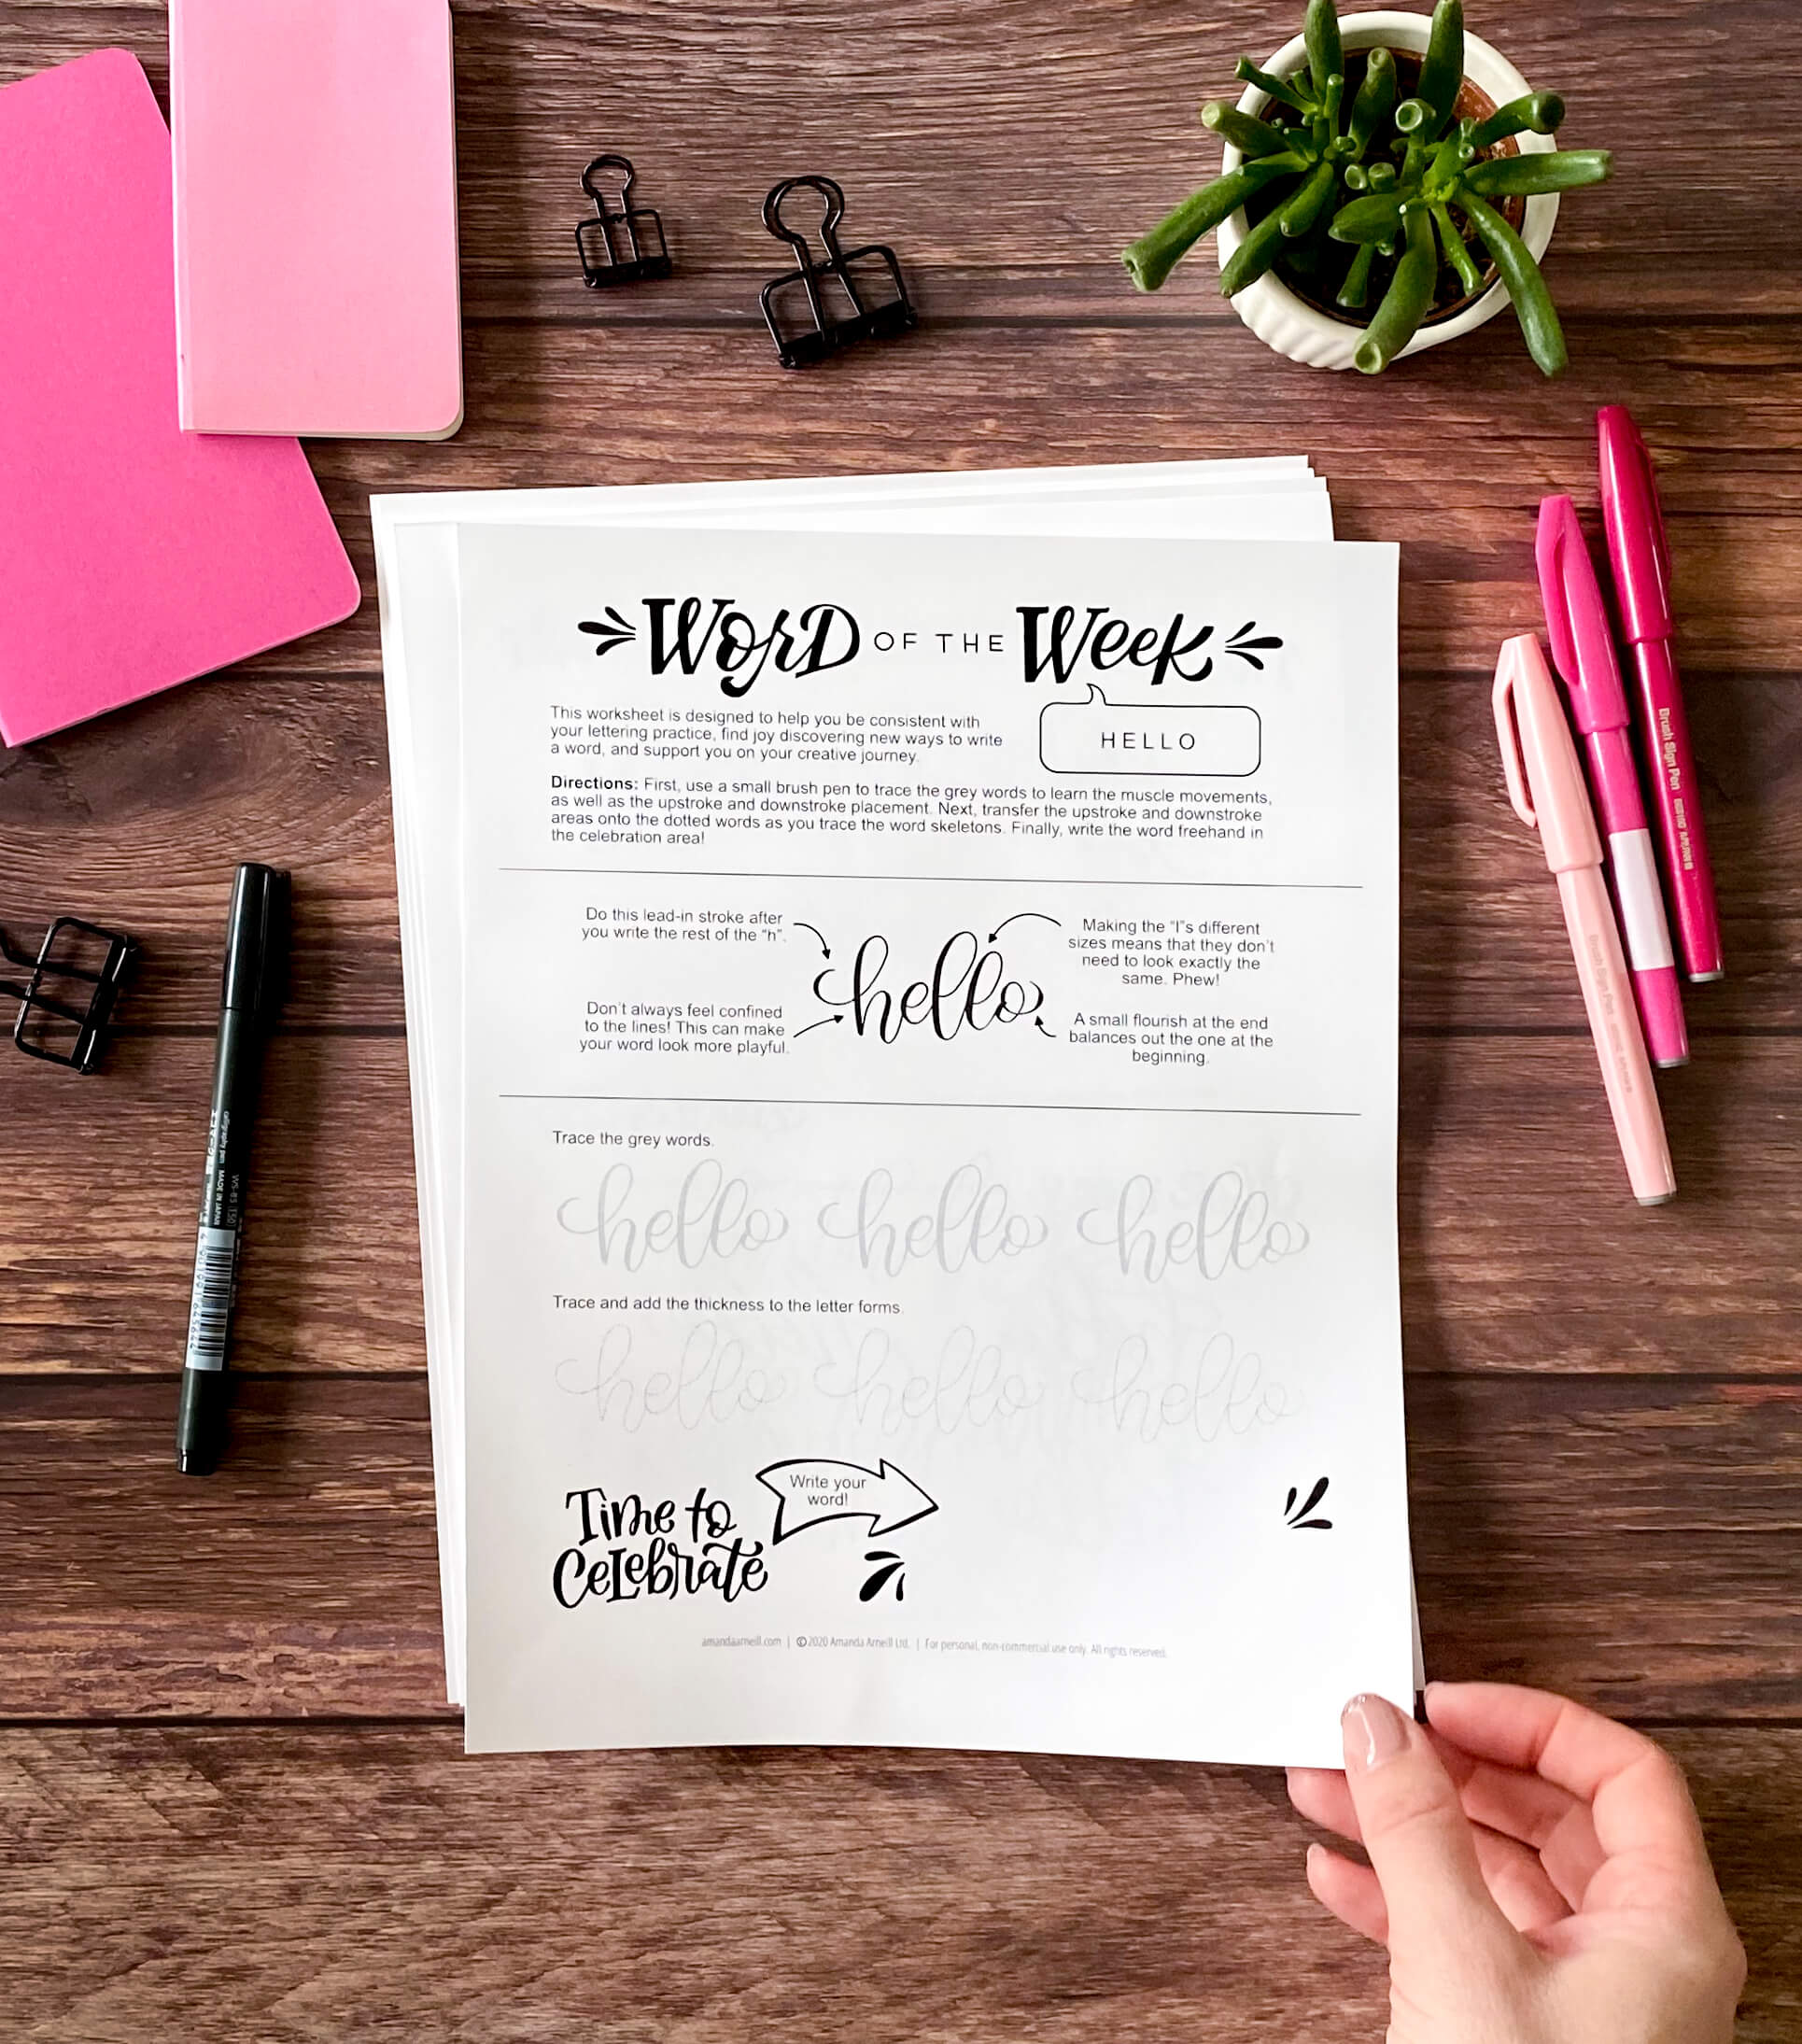 Word OF THE Week
This worksheet is designed to help you be consistent with
your lettering practice, find joy discovering new ways to write
a word, and support you on your creative journey.
HELLO
Directions: First, use a small brush pen to trace the grey words to learn the muscle movements,
as well as the upstroke and downstroke placement. Next, transfer the upstroke and downstroke
areas onto the dotted words as you trace the word skeletons. Finally, write the word freehand in
the celebration area!
Do this lead-in stroke after
you write the rest of the "h".
Don't always feel confined
to the lines! This can make
your word look more playful.
hello
Making the "l"s different
sizes means that they don't
need to look exactly the
same. Phew!
A small flourish at the end
balances out the one at the
beginning.
Trace the grey words.
hello hello hello
Trace and add the thickness to the letter forms.
hello hello hello
Time to
Celebrate
Write your
word!
amandaarneill.com | ©2020 Amanda Arneill Ltd. | For personal, non-commercial use only. All rights reserved.
Brush Sign Pen
Brush Sign Pen
MADE IN JAPAN